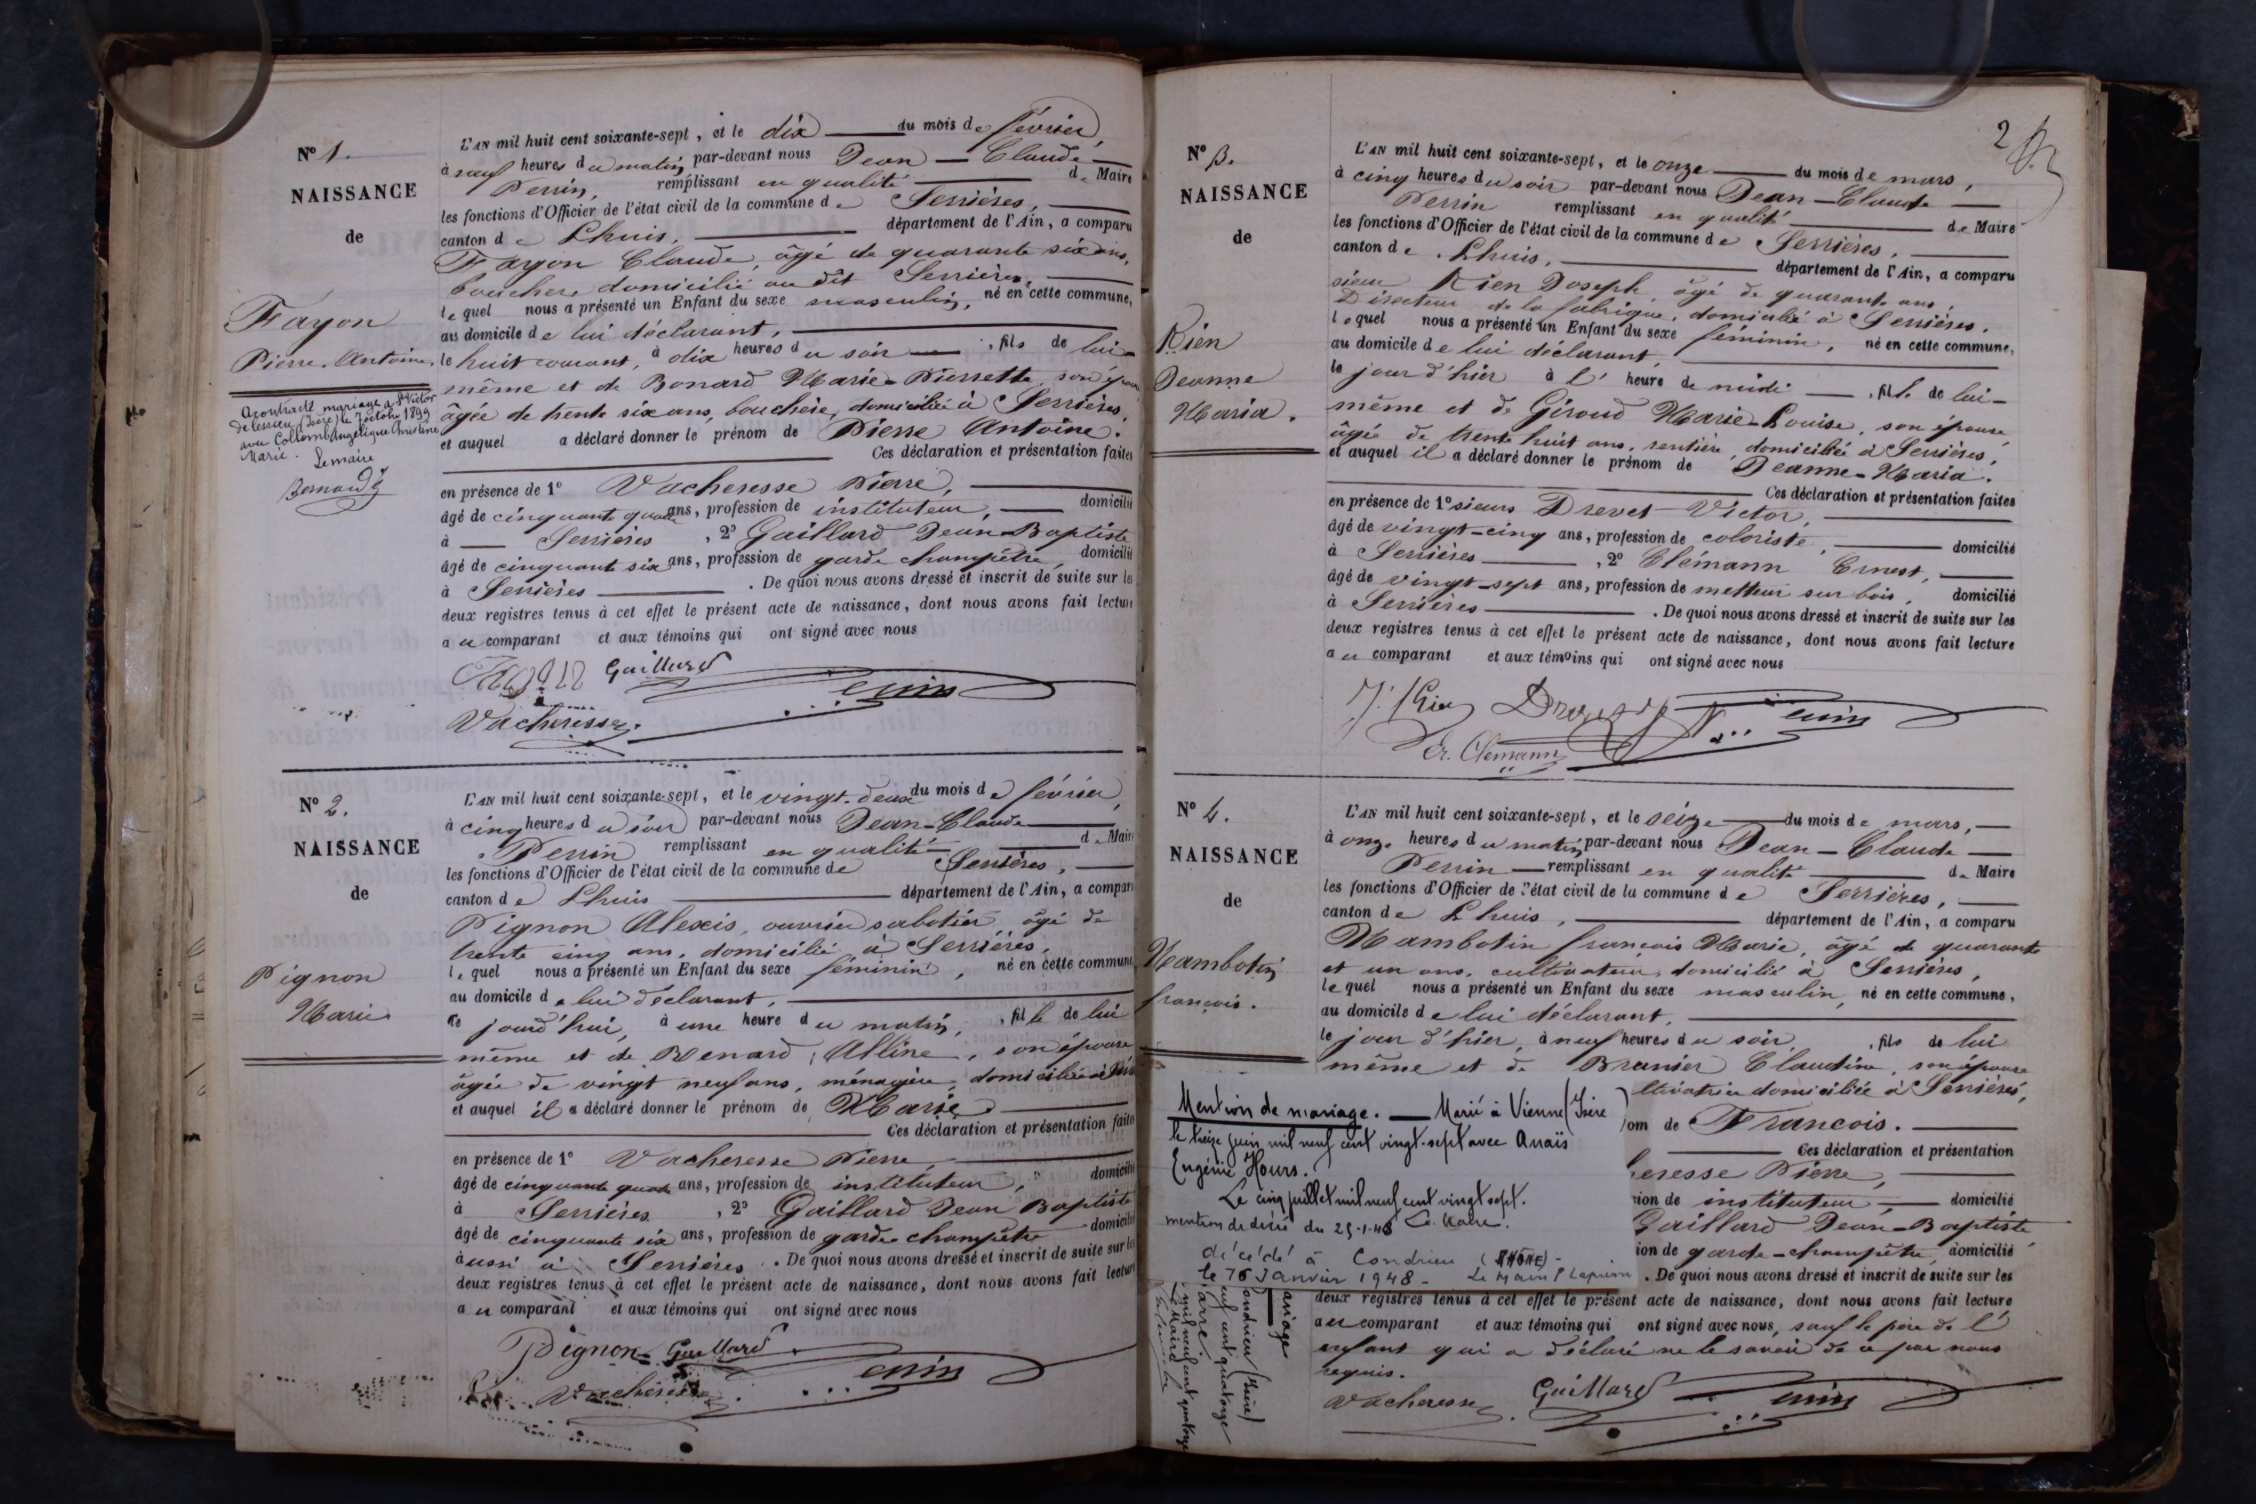 N° 1.
NAISSANCE
de
Fayon
Pierre-Antoine.
A contracté mariage à St Victor
de Cessieu (Isère) le 7 octobre 1899
avec Collomb Angélique Christine
Marie. Le maire
L'AN mil huit cent soixante-sept, et le dix du mois de février,
à neuf heures du matin, par-devant nous Jean-Claude
Perrin, remplissant en qualité de Maire
les fonctions d'Officier de l'état civil de la commune de Serrières,
canton de Lhuis, département de l'Ain, a comparu
Fayon Claude, âgé de quarante six ans,
boucher domicilié au dit Serrières,
lequel nous a présenté un Enfant du sexe masculin, né en cette commune,
au domicile de lui déclarant,
le huit courant, à dix heures du soir, fils de lui-
même et de Bonard Marie-Pierrette, son épouse
âgée de trente six ans, bouchère, domiciliée à Serrières,
et auquel a déclaré donner le prénom de Pierre Antoine.
Ces déclaration et présentation faites
en présence de 1° Vacheresse Pierre,
âgé de cinquante quatre ans, profession de instituteur, domicilié
à Serrières, 2° Gaillard Jean-Baptiste
âgé de cinquante six ans, profession de garde champêtre, domicilié
à Serrières. De quoi nous avons dressé et inscrit de suite sur les
deux registres tenus à cet effet le présent acte de naissance, dont nous avons fait lecture
au comparant et aux témoins qui ont signé avec nous
Gaillard Perrin
Vacheresse.
N° 2.
NAISSANCE
de
Pignon
Marie
L'AN mil huit cent soixante-sept, et le vingt-deux du mois de février,
à cinq heures du soir par-devant nous Jean-Claude
Perrin remplissant en qualité de Maire
les fonctions d'Officier de l'état civil de la commune de Serrières,
canton de Lhuis département de l'Ain, a comparu
Pignon Alexis, ouvrier sabotier, âgé de
trente cinq ans, domicilié à Serrières,
lequel nous a présenté un Enfant du sexe féminin, né en cette commune,
au domicile de lui déclarant,
ce jourd'hui, à une heure du matin, fille de lui
même et de Benard, Alline, son épouse
âgée de vingt neuf ans, ménagère, domiciliée à
et auquel il a déclaré donner le prénom de Marie
Ces déclaration et présentation faites
en présence de 1° Vacheresse Pierre,
âgé de cinquante quatre ans, profession de instituteur, domicilié
à Serrières, 2° Gaillard Jean Baptiste
âgé de cinquante six ans, profession de garde champêtre domicilié
aussi à Serrières. De quoi nous avons dressé et inscrit de suite sur les
deux registres tenus à cet effet le présent acte de naissance, dont nous avons fait lecture
au comparant et aux témoins qui ont signé avec nous
Pignon Gaillard Perrin
Vacheresse
2
N° 3.
NAISSANCE
de
Kien
Jeanne
Maria.
L'AN mil huit cent soixante-sept, et le onze du mois de mars,
à cinq heures du soir par-devant nous Jean-Claude
Perrin remplissant en qualité de Maire
les fonctions d'Officier de l'état civil de la commune de Serrières,
canton de Lhuis, département de l'Ain, a comparu
sieur Kien Joseph, âgé de quarante ans,
Directeur de la fabrique, domicilié à Serrières,
lequel nous a présenté un Enfant du sexe féminin, né en cette commune,
au domicile de lui déclarant,
le jour d'hier à l'heure de midi, fille de lui-
même et de Giroud Marie-Louise, son épouse,
âgée de trente huit ans, rentière, domiciliée à Serrières,
et auquel il a déclaré donner le prénom de Jeanne-Maria.
Ces déclaration et présentation faites
en présence de 1° sieurs Drevet Victor,
âgé de vingt-cinq ans, profession de coloriste, domicilié
à Serrières, 2° Clémann Ernest,
âgé de vingt-sept ans, profession de metteur sur bois, domicilié
à Serrières. De quoi nous avons dressé et inscrit de suite sur les
deux registres tenus à cet effet le présent acte de naissance, dont nous avons fait lecture
au comparant et aux témoins qui ont signé avec nous
J. Kien Drevet V. Perrin
Er. Clemann
N° 4.
NAISSANCE
de
Mambotin
françois.
L'AN mil huit cent soixante-sept, et le seize du mois de mars,
à onze heures du matin par-devant nous Jean-Claude
Perrin remplissant en qualité de Maire
les fonctions d'Officier de l'état civil de la commune de Serrières,
canton de Lhuis, département de l'Ain, a comparu
Mambotin françois Marie, âgé de quarante
et un ans, cultivateur, domicilié à Serrières,
lequel nous a présenté un Enfant du sexe masculin, né en cette commune,
au domicile de lui déclarant,
le jour d'hier, à neuf heures du soir, fils de lui
même et de Branier Claudine, son épouse
ltivatrice domiciliée à Serrières,
om de François.
Ces déclaration et présentation
eresse Pierre,
ion de instituteur, domicilié
Gaillard Jean-Baptiste,
ion de garde-champêtre, domicilié
. De quoi nous avons dressé et inscrit de suite sur les
deux registres tenus à cet effet le présent acte de naissance, dont nous avons fait lecture
au comparant et aux témoins qui ont signé avec nous, sauf le père de l'
enfant qui a déclaré ne le savoir de ce par nous
requis.
Vacheresse. Gaillard Perrin
Mention de mariage. — Marié à Vienne (Isère)
le treize juin mil neuf cent vingt-sept avec Anaïs
Eugénie Hours.
Le cinq juillet mil neuf cent vingt sept.
mention de décès du 25-1-48 Le Maire.
décédé à Condrieu (RHÔNE) -
le 16 Janvier 1948 - Le Maire
ariage
ondrieu (
euf cent quatorze
mil neuf cent quatorze
Le Maire